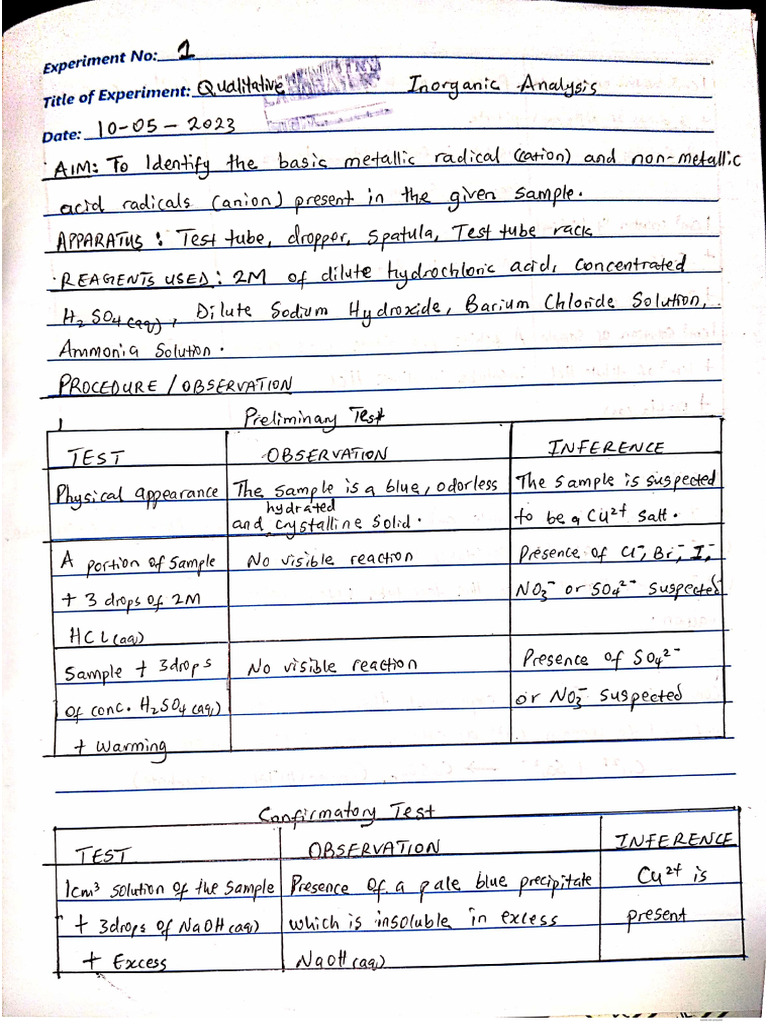 Experiment No: 1
Title of Experiment: Qualitative Inorganic Analysis
Date: 10-05-2023
AIM: To Identify the basic metallic radical (cation) and non-metallic
acid radicals (anion) present in the given sample.
APPARATUS: Test tube, dropper, Spatula, Test tube rack
REAGENTS USED: 2M of dilute hydrochloric acid, Concentrated
H2SO4(aq), Dilute Sodium Hydroxide, Barium Chloride Solution,
Ammonia Solution.
PROCEDURE / OBSERVATION
Preliminary Test
TEST OBSERVATION INFERENCE
Physical appearance The Sample is a blue, odorless The Sample is suspected
hydrated
and crystalline Solid. to be a Cu²⁺ Salt.
A portion of Sample No visible reaction Presence of Cl⁻, Br⁻, I⁻,
+ 3 drops of 2M NO3⁻ or SO4²⁻ suspected
HCl(aq)
Sample + 3drops No visible reaction Presence of SO4²⁻
of conc. H2SO4(aq) or NO3⁻ suspected
+ Warming
Confirmatory Test
TEST OBSERVATION INFERENCE
1cm³ solution of the sample Presence of a pale blue precipitate Cu²⁺ is
+ 3drops of NaOH(aq) which is insoluble in excess present
+ Excess NaOH(aq)